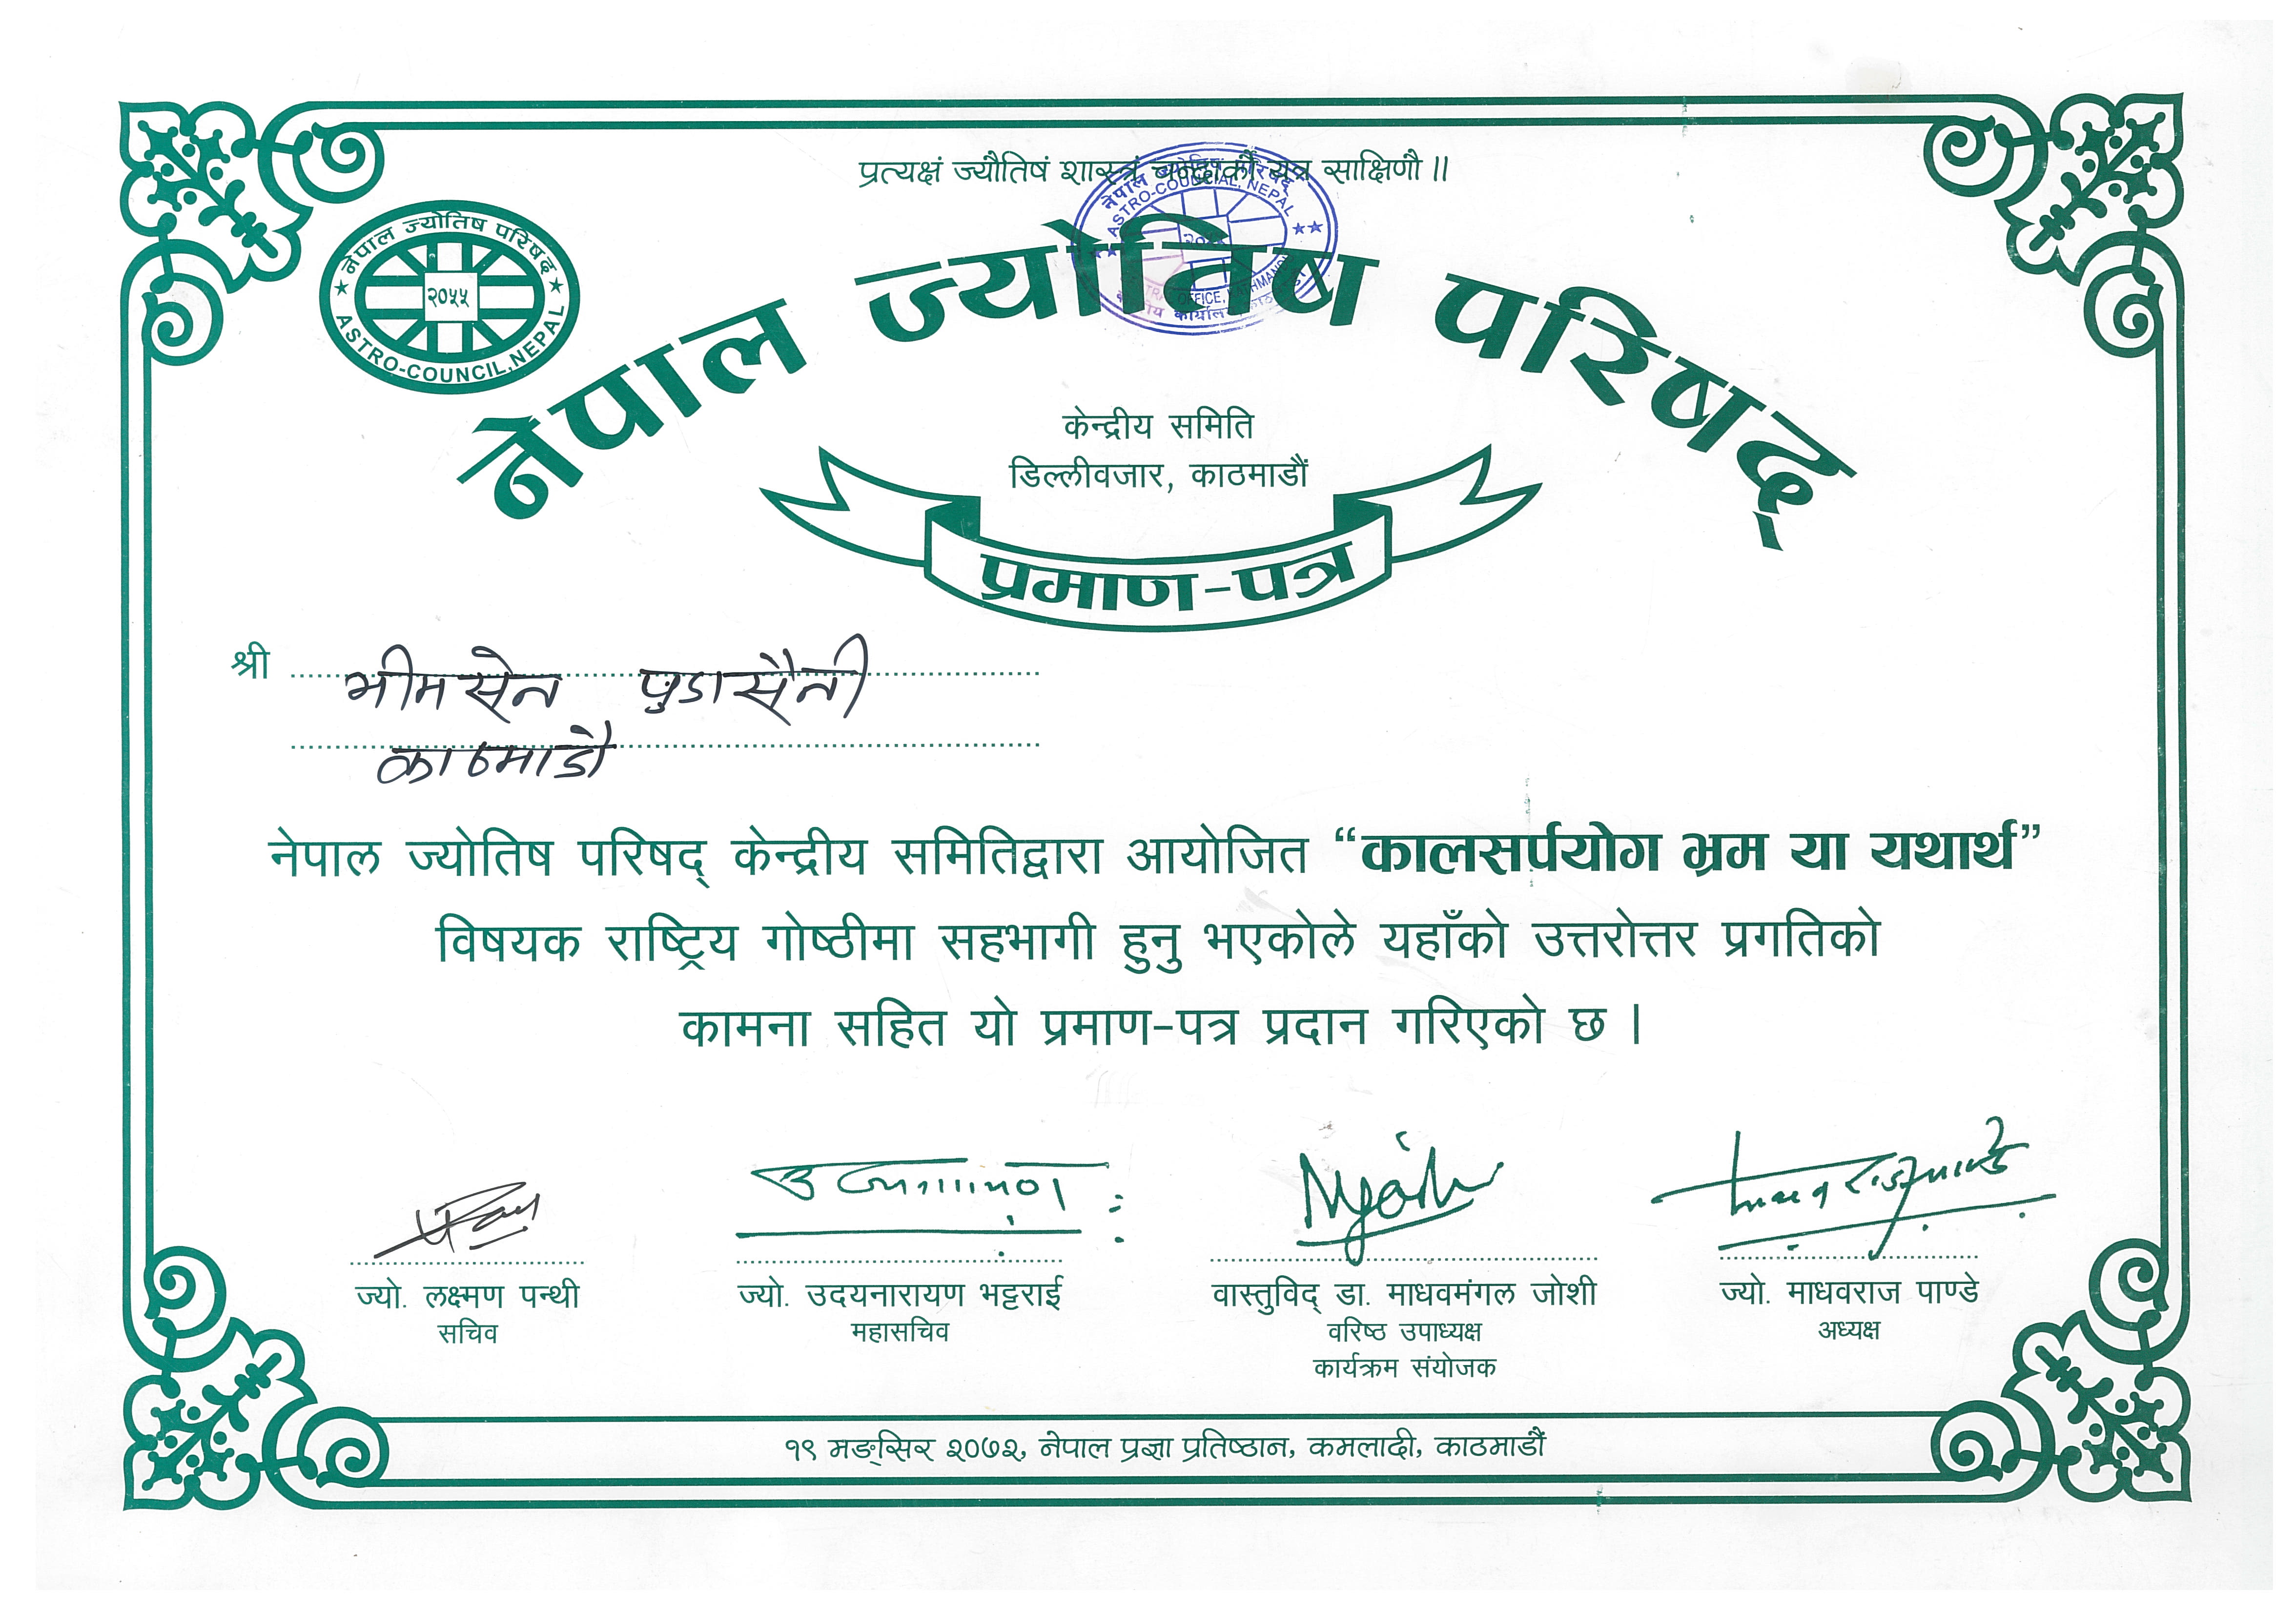 प्रत्यक्षं ज्यौतिषं शास्त्रं चन्द्रार्कौ यत्र साक्षिणौ ॥
नेपाल ज्योतिष परिषद्
ASTRO-COUNCIL, NEPAL
२०५५
नेपाल ज्योतिष परिषद
ASTRO-COUNCIAL, NEPAL
OFFICE, KATHMANDU
नेपाल ज्योतिष परिषद्
केन्द्रीय समिति
डिल्लीवजार, काठमाडौं
प्रमाण-पत्र
श्री भीमसेन पुडासैनी
काठमाडौ
नेपाल ज्योतिष परिषद् केन्द्रीय समितिद्वारा आयोजित “कालसर्पयोग भ्रम या यथार्थ”
विषयक राष्ट्रिय गोष्ठीमा सहभागी हुनु भएकोले यहाँको उत्तरोत्तर प्रगतिको
कामना सहित यो प्रमाण-पत्र प्रदान गरिएको छ ।
ज्यो. लक्ष्मण पन्थी ज्यो. उदयनारायण भट्टराई वास्तुविद् डा. माधवमंगल जोशी ज्यो. माधवराज पाण्डे
सचिव महासचिव वरिष्ठ उपाध्यक्ष अध्यक्ष
कार्यक्रम संयोजक
१९ मङ्सिर २०७२, नेपाल प्रज्ञा प्रतिष्ठान, कमलादी, काठमाडौं